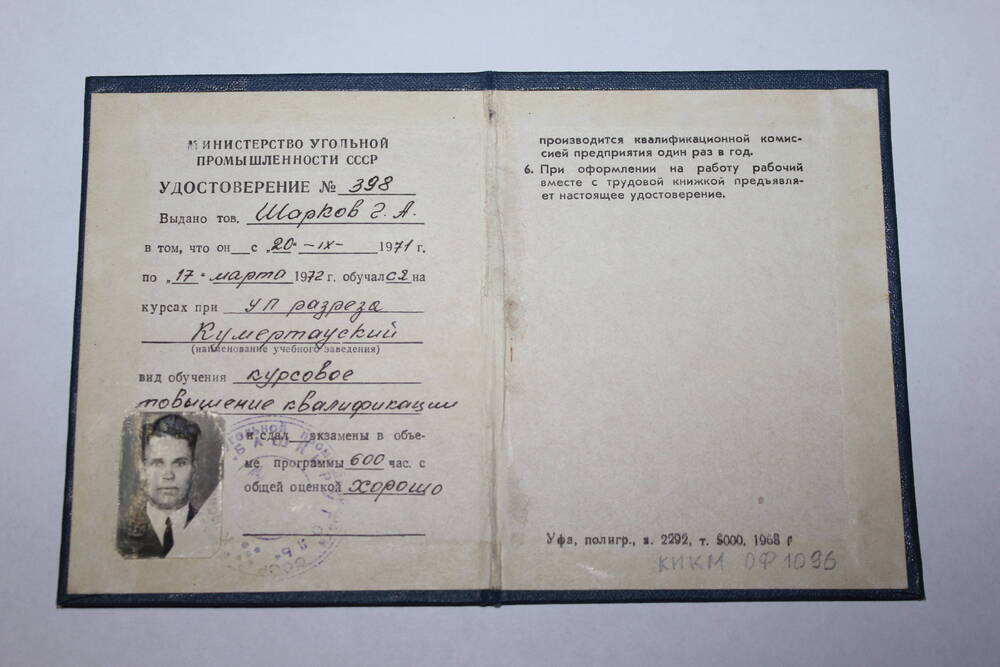 МИНИСТЕРСТВО УГОЛЬНОЙ
ПРОМЫШЛЕННОСТИ СССР
УДОСТОВЕРЕНИЕ № 398
Выдано тов. Шарков Г. А.
в том, что он с „20" -IX- 1971 г.
по „17" марта 1972 г. обучался на
курсах при УП разреза
Кумертауский
(наименование учебного заведения)
вид обучения курсовое
повышение квалификации
и сдал экзамены в объе-
ме программы 600 час. с
общей оценкой хорошо
УГОЛЬНОЙ
СССР
производится квалификационной комис-
сией предприятия один раз в год.
6. При оформлении на работу рабочий
вместе с трудовой книжкой предъявля-
ет настоящее удостоверение.
Уфа, полигр., з. 2292, т. 5000, 1968 г
ККМ ОФ 1096